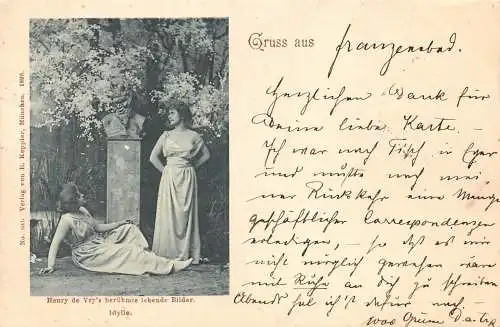 No. 101. Verlag von R. Keppler, München. 1898.
Gruss aus Franzensbad.
Herzlichen Dank für
Deine liebe Karte.
Ich war nach Tisch in Eger
und mußte nach mei
ner Rückkehr eine Menge
geschäftlicher Correspondenzen
erledigen, so daß es mir
nicht möglich gewesen
mit Ruhe an Dich zu schreiben
Abends hol ich's dafür nach
Henry de Vry's berühmte lebende Bilder.
Idylle.